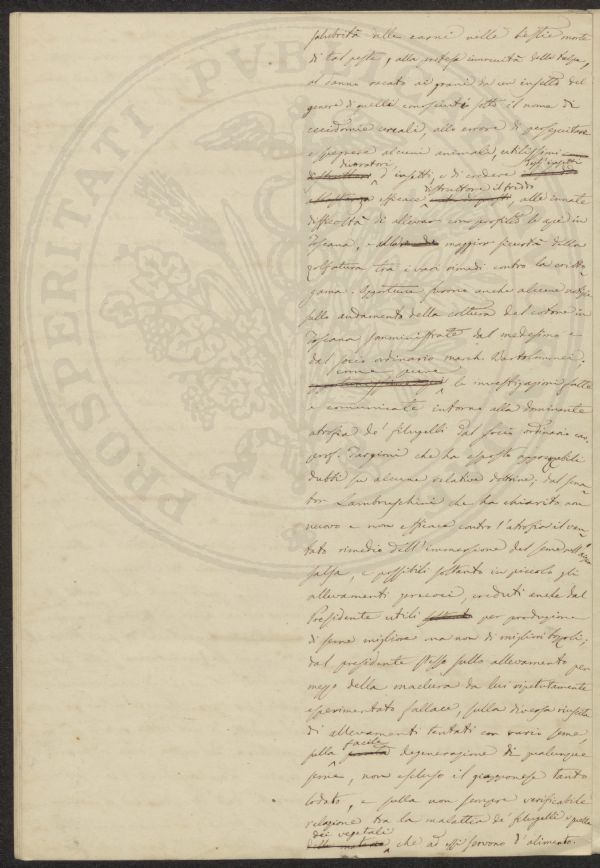 salubrità alle carni nelle bestie morte
di tal peste, alla pretesa innocuità della talpa,
al danno recato ai grani da un insetto del
genere di quelli conosciuti sotto il nome di
cecidomie cereali, allo errore di perseguitare
e spegnere alcuni animali, utilissimi
divoratori
d'insetti, e di credere
degli insetti
distruttore il freddo
efficace, alle innate
difficoltà di allevar con profitto le api in
Toscana, e alla maggior sicurtà della
zolfatura tra i varj rimedi contro la critto
gama. Opportune furono anche alcune notizie
sullo andamento della coltura del cotone in
Toscana somministrate dal medesimo e
dal socio ordinario march. Bartolommei;
come pure
le investigazioni fatte
e comunicate intorno alla dominante
atrofia de' filugelli dal socio ordinario cav.
prof. Targioni che ha esposto
dubbi su alcune relative dottrine; dal sena
tor Lambruschini che ha chiarito non
nuovo e non efficace contro l'atrofia il van
tato rimedio dell'immersione del seme nell'acqua
salsa, e possibili soltanto in piccolo gli
allevamenti precoci, creduti anche dal
Presidente utili per produzione
di seme migliore ma non di migliori bozzoli;
dal presidente stesso sullo allevamento per
mezzo della maclura da lui ripetutamente
esperimentato fallace, sulla diversa riuscita
di allevamenti tentati con vario seme,
facile
sulla degenerazione di qualunque
seme, non escluso il giapponese tanto
lodato, e sulla non sempre verificabile
relazione tra la malattia de' filugelli e quella
dei vegetali
che ad essi servono d'alimento.
PROSPERITATI PUBLICAE